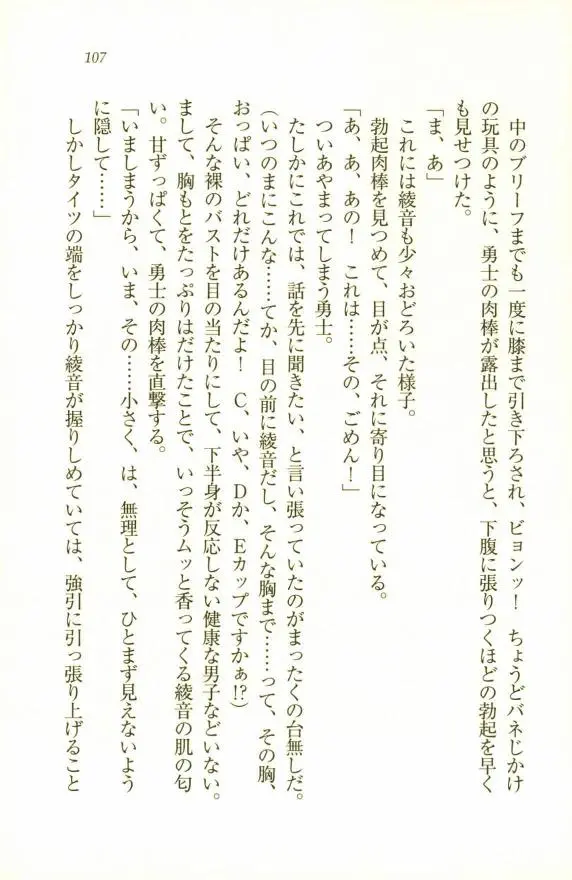 107
中のブリーフまでも一度に膝まで引き下ろされ、ビョンッ！　ちょうどバネじかけ
の玩具のように、勇士の肉棒が露出したと思うと、下腹に張りつくほどの勃起を早く
も見せつけた。
「ま、あ」
これには綾音も少々おどろいた様子。
勃起肉棒を見つめて、目が点、それに寄り目になっている。
「あ、あ、あの！　これは……その、ごめん！」
ついあやまってしまう勇士。
たしかにこれでは、話を先に聞きたい、と言い張っていたのがまったくの台無しだ。
（いつのまにこんな……てか、目の前に綾音だし、そんな胸まで……って、その胸、
おっぱい、どれだけあるんだよ！　Ｃ、いや、Ｄか、Ｅカップですかぁ!?）
そんな裸のバストを目の当たりにして、下半身が反応しない健康な男子などいない。
まして、胸もとをたっぷりはだけたことで、いっそうムッと香ってくる綾音の肌の匂
い。甘ずっぱくて、勇士の肉棒を直撃する。
「いましまうから、いま、その……小さく、は、無理として、ひとまず見えないよう
に隠して……」
しかしタイツの端をしっかり綾音が握りしめていては、強引に引っ張り上げること